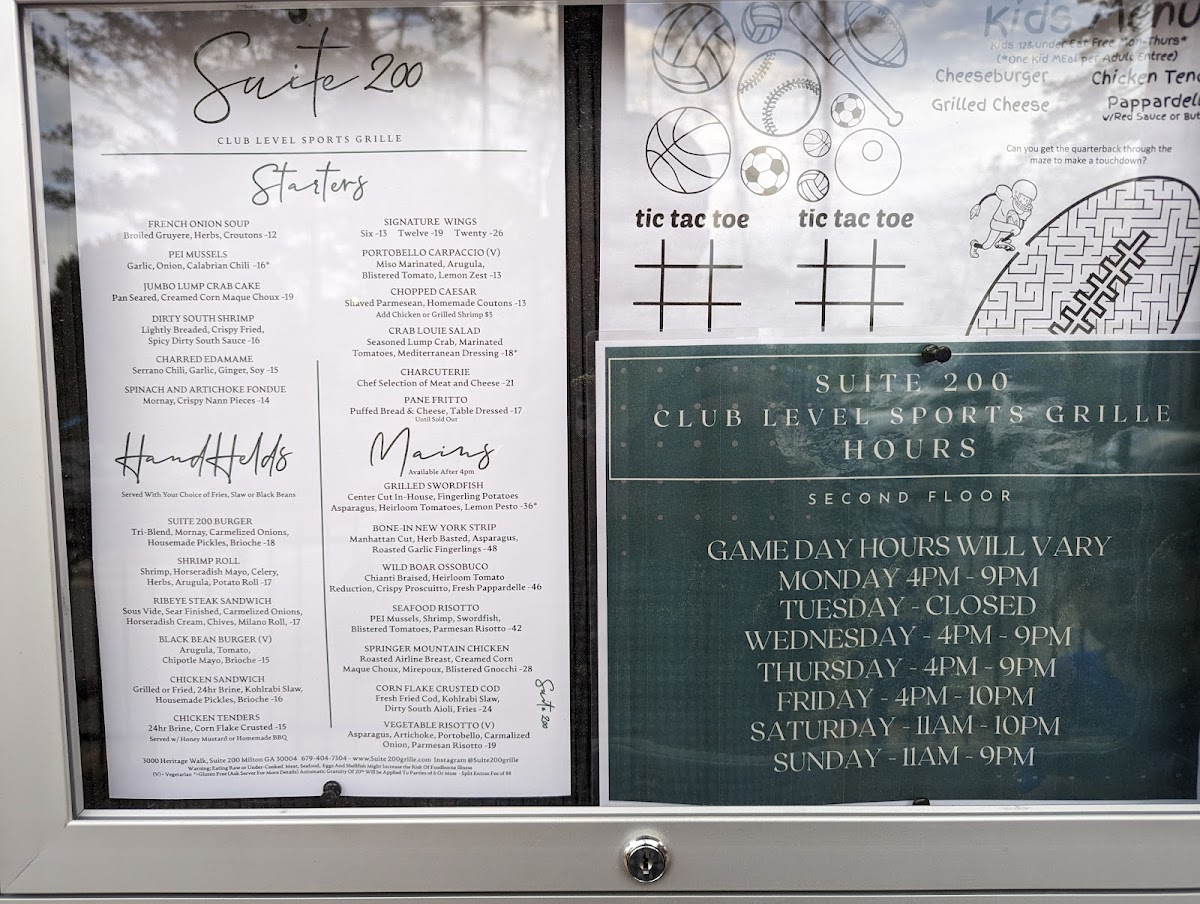 Suite 200
CLUB LEVEL SPORTS GRILLE
Starters
FRENCH ONION SOUP
Broiled Gruyere, Herbs, Croutons -12
PEI MUSSELS
Garlic, Onion, Calabrian Chili -16*
JUMBO LUMP CRAB CAKE
Pan Seared, Creamed Corn Maque Choux -19
DIRTY SOUTH SHRIMP
Lightly Breaded, Crispy Fried,
Spicy Dirty South Sauce -16
CHARRED EDAMAME
Serrano Chili, Garlic, Ginger, Soy -15
SPINACH AND ARTICHOKE FONDUE
Mornay, Crispy Nann Pieces -14
SIGNATURE WINGS
Six -13 Twelve -19 Twenty -26
PORTOBELLO CARPACCIO (V)
Miso Marinated, Arugula,
Blistered Tomato, Lemon Zest -13
CHOPPED CAESAR
Shaved Parmesean, Homemade Coutons -13
Add Chicken or Grilled Shrimp $5
CRAB LOUIE SALAD
Seasoned Lump Crab, Marinated
Tomatoes, Mediterranean Dressing -18*
CHARCUTERIE
Chef Selection of Meat and Cheese -21
PANE FRITTO
Puffed Bread & Cheese, Table Dressed -17
Until Sold Out
HandHelds
Served With Your Choice of Fries, Slaw or Black Beans
SUITE 200 BURGER
Tri-Blend, Mornay, Carmelized Onions,
Housemade Pickles, Brioche -18
SHRIMP ROLL
Shrimp, Horseradish Mayo, Celery,
Herbs, Arugula, Potato Roll -17
RIBEYE STEAK SANDWICH
Sous Vide, Sear Finished, Carmelized Onions,
Horseradish Cream, Chives, Milano Roll, -17
BLACK BEAN BURGER (V)
Arugula, Tomato,
Chipotle Mayo, Brioche -15
CHICKEN SANDWICH
Grilled or Fried, 24hr Brine, Kohlrabi Slaw,
Housemade Pickles, Brioche -16
CHICKEN TENDERS
24hr Brine, Corn Flake Crusted -15
Served w/ Honey Mustard or Homemade BBQ
Mains
Available After 4pm
GRILLED SWORDFISH
Center Cut In-House, Fingerling Potatoes
Asparagus, Heirloom Tomatoes, Lemon Pesto -36*
BONE-IN NEW YORK STRIP
Manhattan Cut, Herb Basted, Asparagus,
Roasted Garlic Fingerlings -48
WILD BOAR OSSOBUCO
Chianti Braised, Heirloom Tomato
Reduction, Crispy Proscuitto, Fresh Pappardelle -46
SEAFOOD RISOTTO
PEI Mussels, Shrimp, Swordfish,
Blistered Tomatoes, Parmesan Risotto -42
SPRINGER MOUNTAIN CHICKEN
Roasted Airline Breast, Creamed Corn
Maque Choux, Mirepoux, Blistered Gnocchi -28
CORN FLAKE CRUSTED COD
Fresh Fried Cod, Kohlrabi Slaw,
Dirty South Aioli, Fries -24
VEGETABLE RISOTTO (V)
Asparagus, Artichoke, Portobello, Carmalized
Onion, Parmesan Risotto -19
Suite 200
3000 Heritage Walk, Suite 200 Milton GA 30004 679-404-7304 - www.Suite 200grille.com Instagram @Suite200grille
Warning; Eating Raw or Under-Cooked Meat, Seafood, Eggs And Shellfish Might Increase the Risk Of Foodborne Illness
(V) - Vegetarian *=Gluten Free (Ask Server For More Details) Automatic Gratuity Of 20% Will be Applied To Parties of 6 Or More - Split Entree Fee of $8
Kids Menu
Kids 12&under Eat Free Mon-Thurs*
(*One Kid MEal per Adult Entree)
Cheeseburger
Chicken Tend
Grilled Cheese
Pappardell
w/Red Sauce or But
Can you get the quarterback through the
maze to make a touchdown?
tic tac toe
tic tac toe
SUITE 200
CLUB LEVEL SPORTS GRILLE
HOURS
SECOND FLOOR
GAME DAY HOURS WILL VARY
MONDAY 4PM - 9PM
TUESDAY - CLOSED
WEDNESDAY - 4PM - 9PM
THURSDAY - 4PM - 9PM
FRIDAY - 4PM - 10PM
SATURDAY - 11AM - 10PM
SUNDAY - 11AM - 9PM